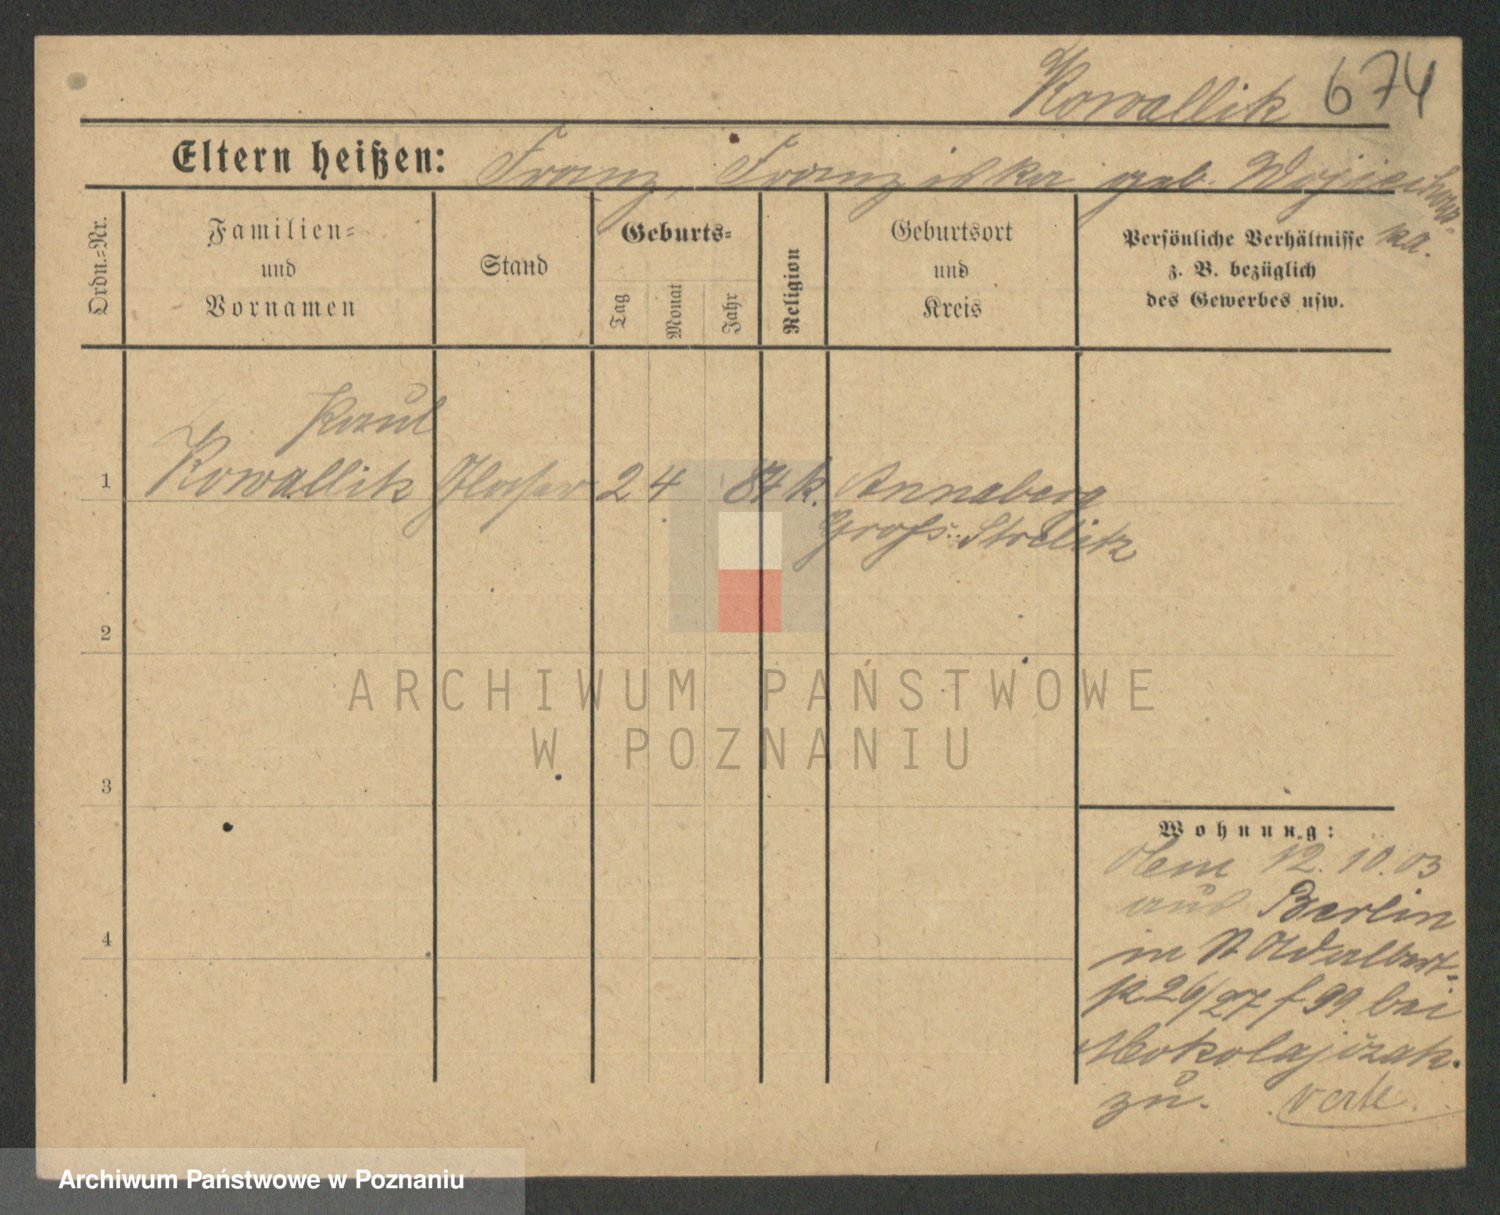 Kowallik 674
Eltern heißen: Franz, Franziska geb. Wojciechows-
ka.
Ordn.-Nr.
Familien-
und
Vornamen
Stand
Geburts-
Tag
Monat
Jahr
Religion
Geburtsort
und
Kreis
Persönliche Verhältnisse
z. B. bezüglich
des Gewerbes usw.
Paul
1 Kowallik Glaser 2 4 84 k. Annaberg
Groß-Strelitz
2
ARCHIWUM PAŃSTWOWE
W POZNANIU
3
Wohnung:
12.10.03
aus Berlin
in St Adalbert-
26/27 f 99 bei
Mokolajczak
zu. verte
4
Archiwum Państwowe w Poznaniu